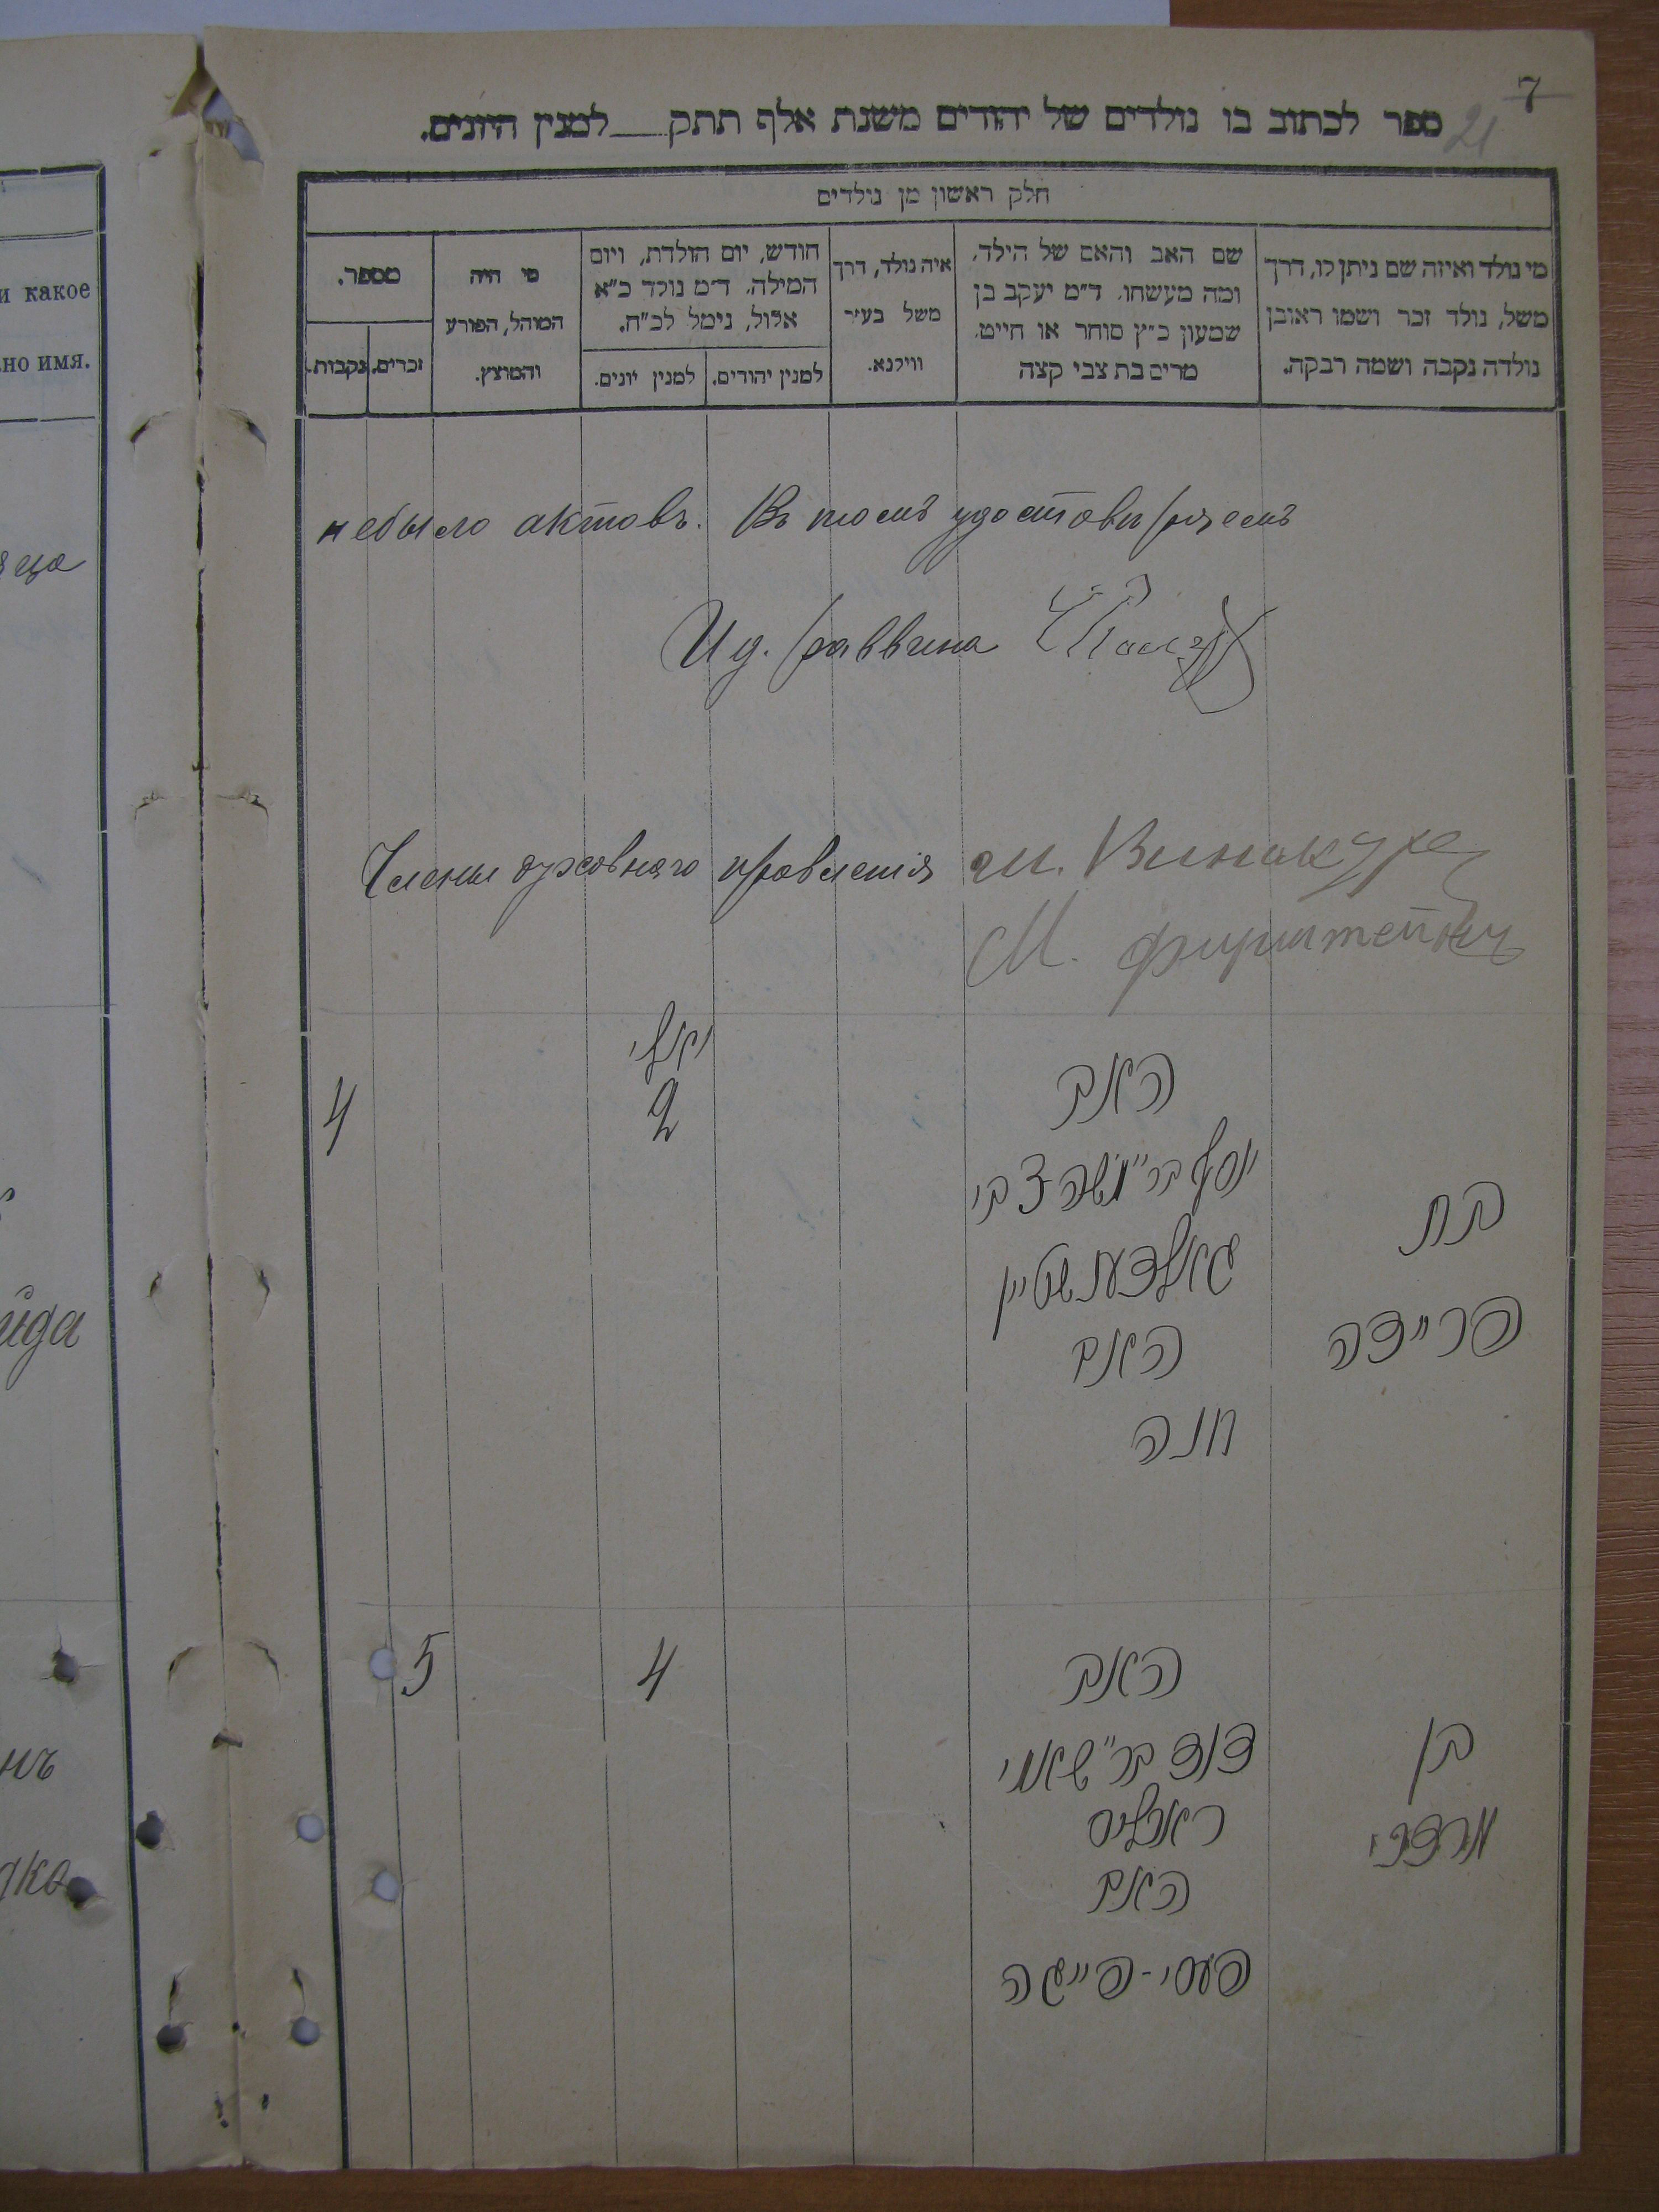 7
21
ספר לכתוב בו נולדים של יהודים משנת אלף תתק למנין היונים.
חלק ראשון מן נולדים
מי נולד ואיזה שם ניתן לו, דרך
משל, נולד זכר ושמו ראובן
נולדה נקבה ושמה רבקה.
שם האב והאם של הילד,
ומה מעשהו. ד"מ יעקב בן
שמעון כ"ץ סוחר או חייט.
מרים בת צבי קצה
איה נולד, דרך
משל בעיר
ווילנא.
חודש, יום הולדת, ויום
המילה. ד"מ נולד כ"א
אלול, נימל לכ"ח.
למנין יהודים.
למנין יונים.
מי היה
המוהל, הפורע
והמוצץ.
מספר.
זכרים.
נקבות.
и какое
но имя.
небыло актовъ. Въ томъ удостоверяемъ
И д. раввина
Члены духовнаго правленія М. Винакуръ
М. Фирштейнъ
יולי
4
2
האב
יוסף בר' משה צבי
גאלדענשטיין
האם
חנה
בת
פריידה
5
4
האב
דוד בר'
האם
פעסי-פייגה
בן
מרדכי
йда
нъ